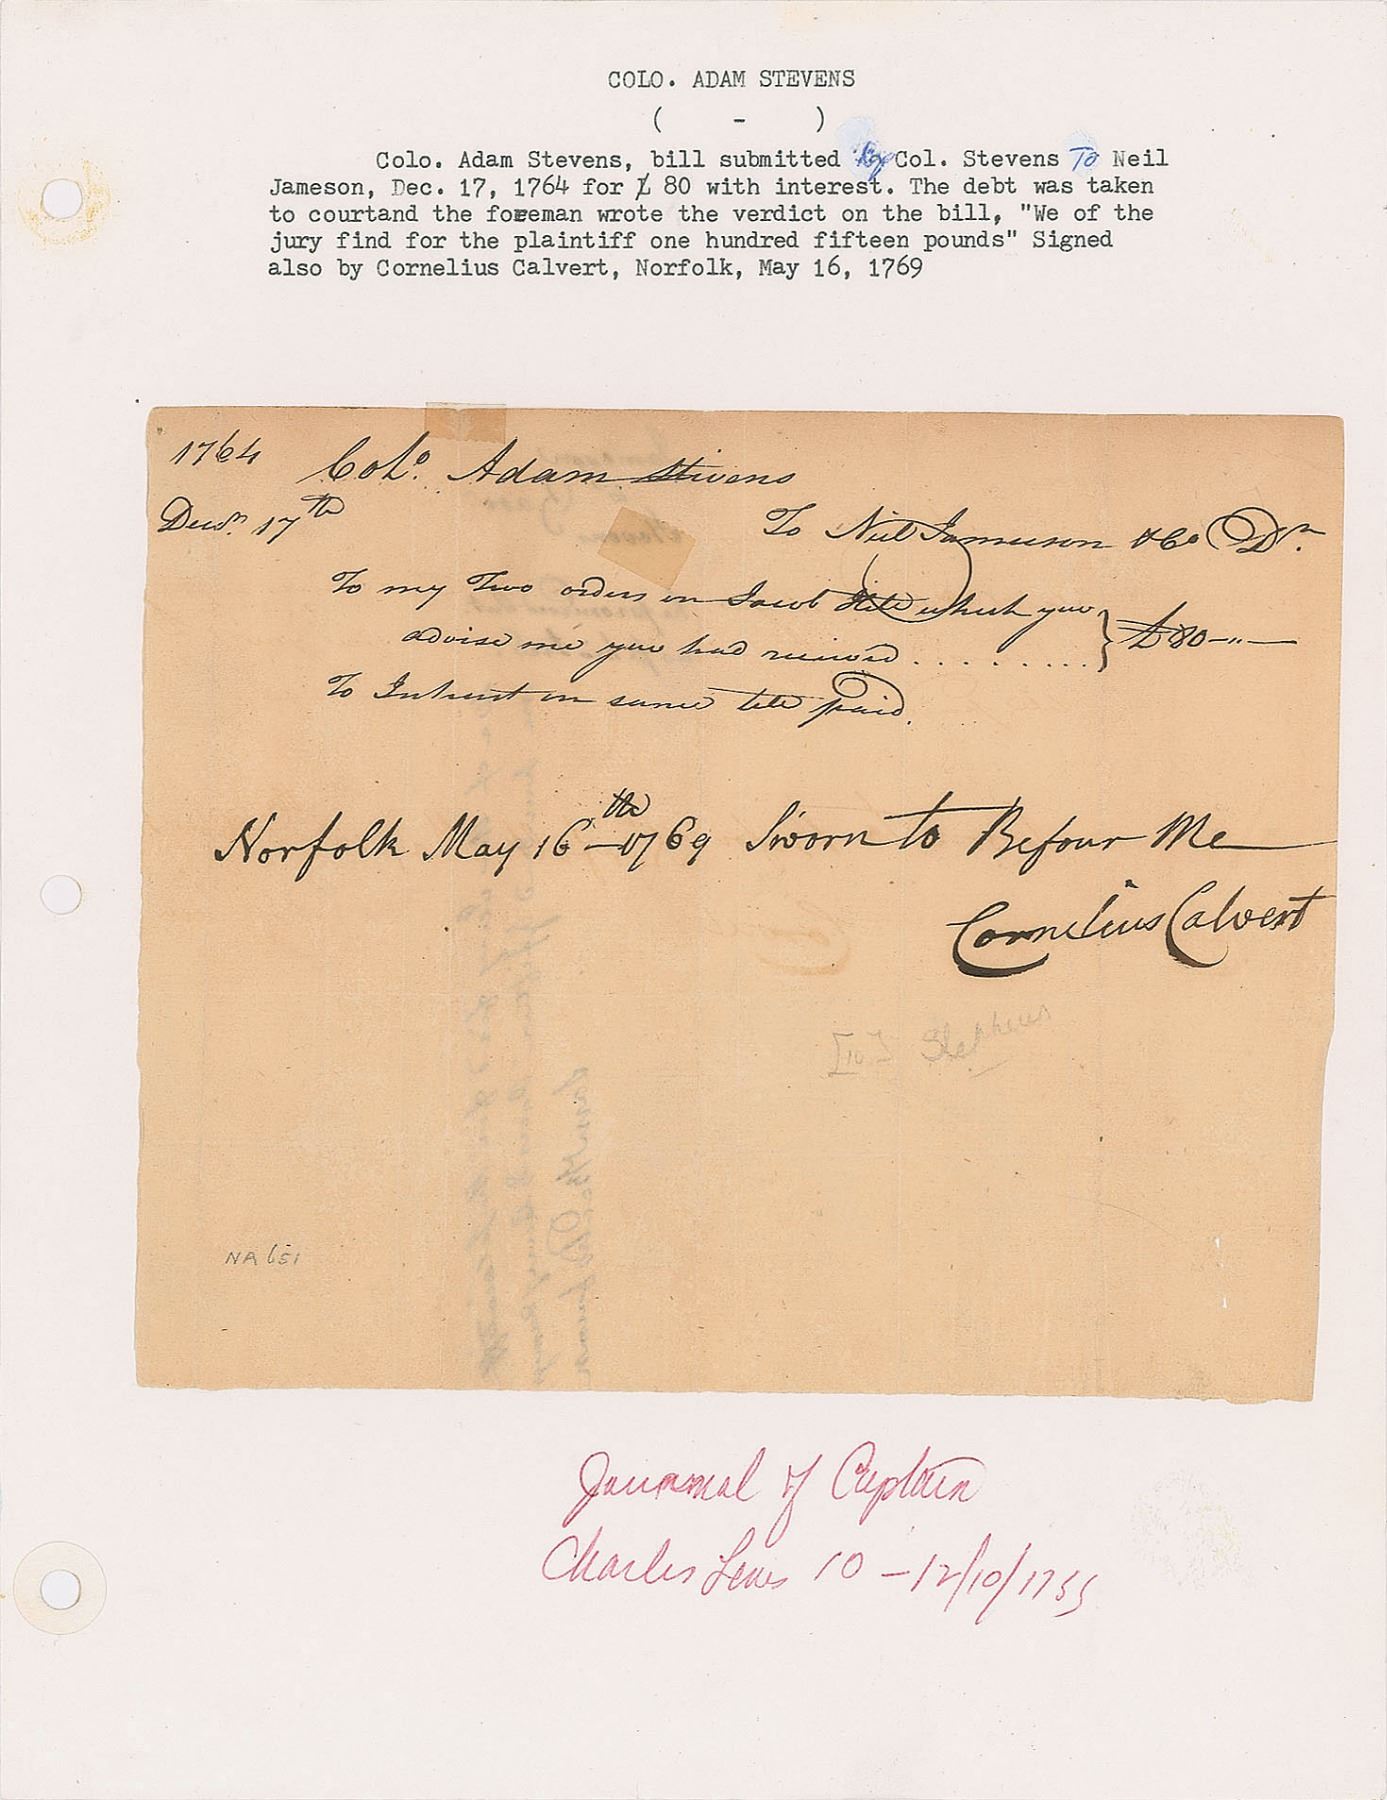 COLO. ADAM STEVENS
( - )
Colo. Adam Stevens, bill submitted by Col. Stevens To Neil
Jameson, Dec. 17, 1764 for £ 80 with interest. The debt was taken
to courtand the foreman wrote the verdict on the bill, "We of the
jury find for the plaintiff one hundred fifteen pounds" Signed
also by Cornelius Calvert, Norfolk, May 16, 1769
1764 Colo. Adam Stivens
Decr. 17th
To Niel Jameson & Co Dr.
To my Two orders on Jacob Hite which you
advise me you had receivd . . . . . . . . . } £80-"-
To Interest on same till paid.
Norfolk May 16th 1769 Sworn to Befour Me
Cornelius Calvert
[10] Stephens
NA 651
Journal of Captain
Charles Lewis 10 - 12/10/1755